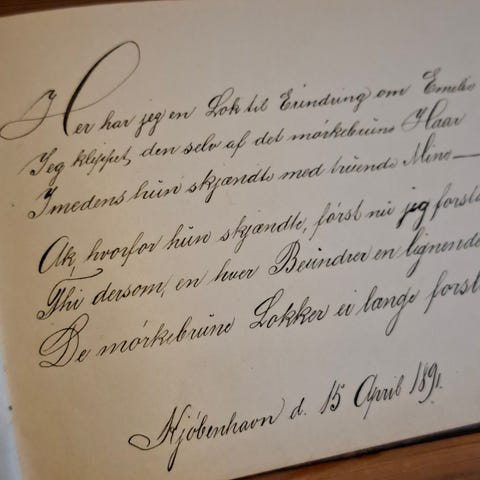 Her har jeg en Lok til Erindring om Emelie
Jeg klippet den selv af det mørkebrune Haar
Imedens hun skjændte med truende Mine —
Ak, hvorfor hun skjændte, først nu jeg forsta
Thi dersom en hver Beundrer en lignende
De mørkebrune Lokker ei længe forst
Kjöbenhavn d. 15 April 1891.